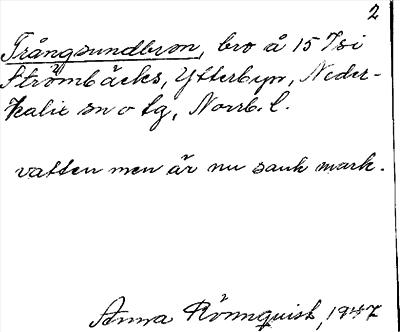 2
Trångsundbron, bro å 15 7si
Strömbäcks, Ytterbyn, Neder-
Kalix sn o tg, Norrb. l.
vatten men är nu sank mark.
Anna Rönnquist, 1947